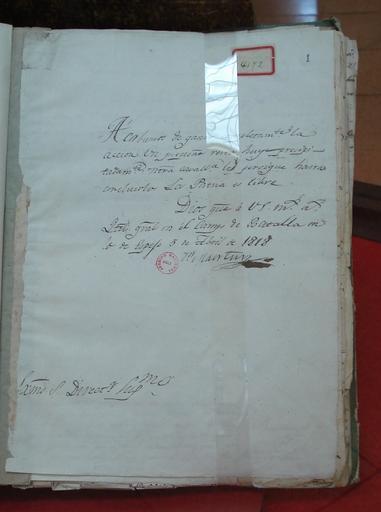 4172
1
Acabamos de ganar completamte la
accion. Un pequeño resto huye precipi-
tadamte nra cavalla lo persigue hasta
concluirlo. La Patria es libre.
Dios gue á V.E. ms as
Ctel gral en el Campo de Batalla
de Espejo 5 de Abril de 1818
Sn Martin
Exmo Sr Director Supmo